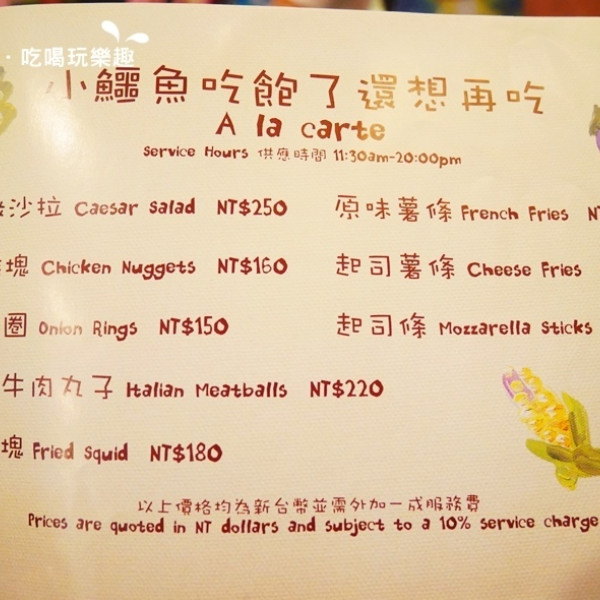 ·吃喝玩樂趣
小鱷魚吃飽了還想再吃
A la carte
Service Hours 供應時間 11:30am-20:00pm
沙拉 Caesar Salad NT$250
塊 Chicken Nuggets NT$160
圈 Onion Rings NT$150
牛肉丸子 Italian Meatballs NT$220
塊 Fried Squid NT$180
原味薯條 French Fries
起司薯條 Cheese Fries
起司條 Mozzarella Sticks
以上價格均為新台幣並需外加一成服務費
Prices are quoted in NT dollars and subject to a 10% service charge